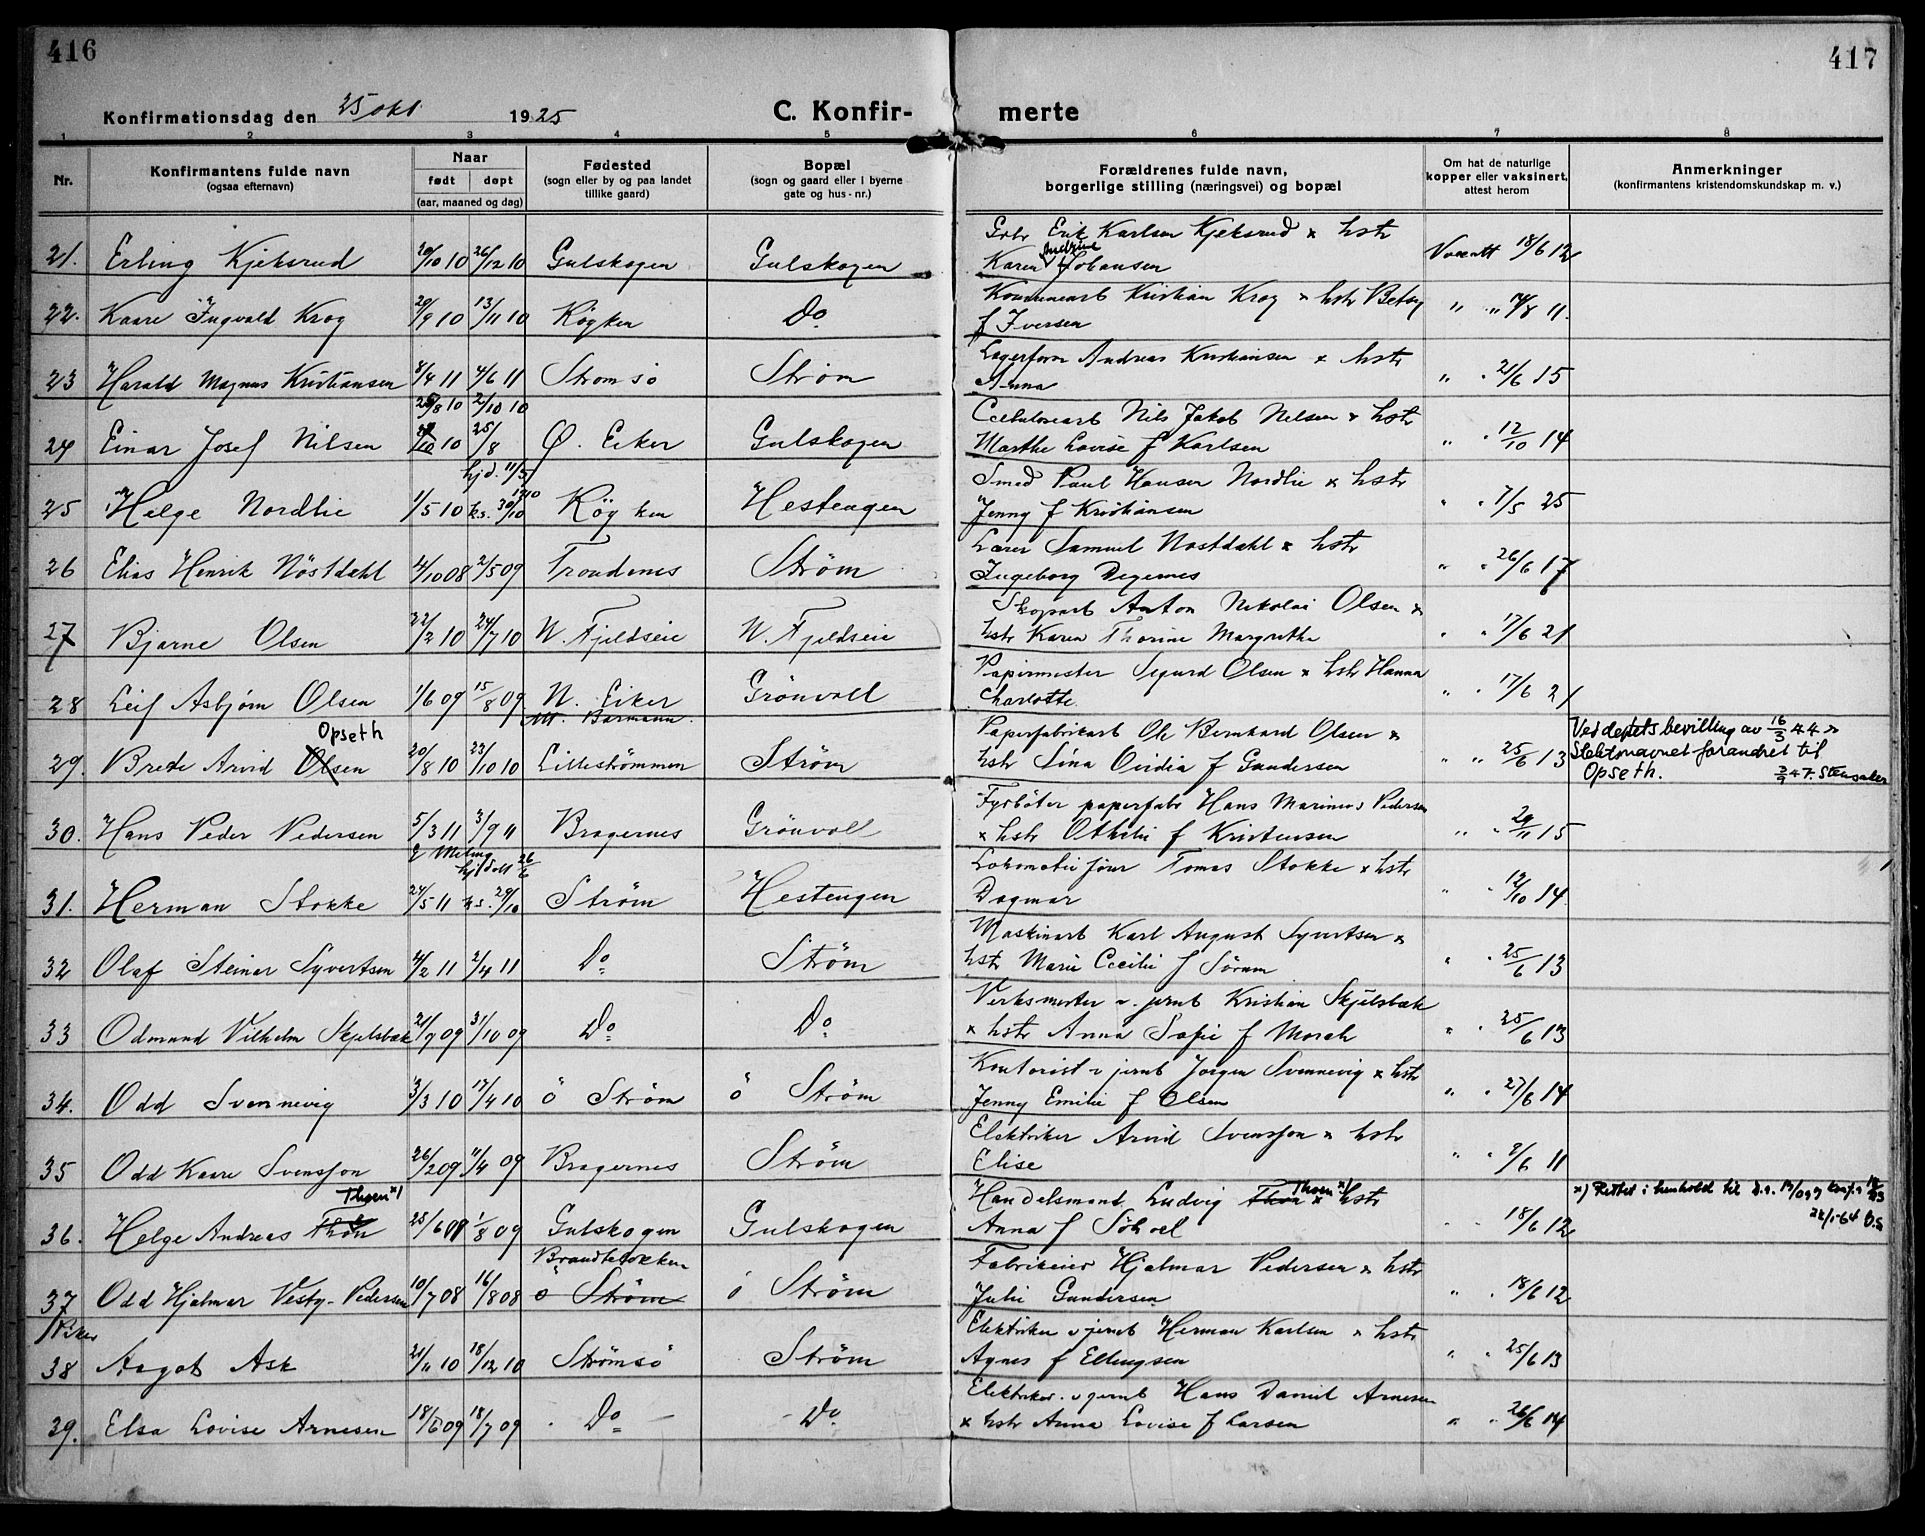 416
417
Konfirmationsdag den 25 okt. 1925
C. Konfir- merte
1 2 3 4 5 6 7 8
Nr.
Konfirmantens fulde navn
(ogsaa efternavn)
Naar
født døpt
(aar, maaned og dag)
Fødested
(sogn eller by og paa landet
tillike gaard)
Bopæl
(sogn og gaard eller i byerne
gate og hus-nr.)
Forældrenes fulde navn,
borgerlige stilling (næringsvei) og bopæl
Om hat de naturlige
kopper eller vaksinert,
attest herom
Anmerkninger
(konfirmantens kristendomskundskap m. v.)
Erik Karlsen Kjeksrud × hstr
21. Erling Kjeksrud 20/10 10 26/12 10 Gulskogen Gulskogen Karen Andrine Johansen 18/6 12
Kristian Krog × hstr Betsy
22. Kaare Ingvald Krog 20/9 10 13/11 10 Röyken Do f Iversen " "
Lagerform Andreas Kristiansen × hstr
23 Harald Magnus Kristiansen 8/4 11 4/6 11 Stromsö Strøm Anna " " 21/6 15
25/8 10 2/10 10
Nils Jakob Nilsen × hstr
24 Einar Josef Nilsen Ø. Eiker Gulskogen Marthe Lovise f Karlsen " " 12/10 14
hjd. 11/5
Smed Paul Hansen Nordlie × hstr
25 Helge Nordlie 1/5 10 k.s. 30/10 Röyken Hestengen Jenny f Kristiansen " " 7/5 25
Lærer Samuel Nöstdahl × hstr
26 Elias Henrik Nöstdahl 4/10 08 2/5 09 Trondenes Strøm Ingeborg Degernes " " 26/6 17
Skopart Anton Nikolai Olsen ×
27 Bjarne Olsen 22/2 10 24/7 10 N. Fjeldseie N. Fjeldseie hstr Karen Thorine Margrethe " " 17/6 21
Papirmester Sigurd Olsen × hstr Hanna
28 Leif Asbjørn Olsen 1/6 09 15/8 09 N. Eiker Grönvoll Charlotte " " 17/6 21
Opseth
Papirfabrikarb Ole Bernhard Olsen ×
Ved depets bevilling av 16/3 44 ×
29. Brede Arvid Olsen 20/8 10 23/10 10 Lillestrømmen Strøm hstr Lina Ovidia f Gundersen " " 25/6 13 Slektsnavnet forandret til
Opseth. 3/9 47.
Fyrböter papirfabr Hans Marinius Pedersen
30. Hans Peder Pedersen 5/3 11 3/9 11 Bragernes Grönvoll × hstr Othelie f Kristensen " " 29/11 15
hjdöbt 26/6
Lokomotivförer Tomas Stokke × hstr
31. Herman Stokke 24/5 11 k.s. 29/10 Strøm Hestengen Dagmar " " 12/10 14
Maskinarb Karl August Syvertsen ×
32 Olaf Steinar Syvertsen 4/2 11 2/4 11 Do Strøm hstr Marie Cecilie f Sörum " " 25/6 13
Verksmester v. jernb Kristian Skjelsbæk
33 Odmund Vilhelm Skjelsbæk 21/9 09 31/10 09 Do Do × hstr Anna Sofie f Morch " " 25/6 13
Kontorist v jernb Jørgen Svennevig × hstr
34. Odd Svennevig 3/3 10 17/4 10 ö Strøm ö Strøm Jenny Emilie f Olsen " " 27/6 14
Elektriker Arvid Svensson × hstr
35 Odd Kaare Svensson 26/2 09 11/4 09 Bragernes Strøm Elise " " 2/6 11
Thoen ×)
Handelsmand Ludvig Thon Thoen ×) × hstr
×) Rettet i henhold til
36. Helge Andreas Thon 25/6 08 1/8 09 Gulskogen Gulskogen Anna f Solvoll " " 18/6 12 22/1-64
Brandtebokken
Fabrikeier Hjalmar Pedersen × hstr
37 Odd Hjalmar Vestg-Pedersen 10/7 08 16/8 08 ö Strøm ö Strøm Julie Gundersen " " 18/6 12
Piker
Elektriker v jernb Herman Karlsen × hstr
38 Aagot Ask 21/11 10 18/12 10 Strømsö Strøm Agnes f Ellingsen " " 25/6 13
Elektriker v jernb Hans Daniel Arnesen
39. Elsa Lovise Arnesen 18/5 09 18/7 09 Do Do × hstr Anna Lovise f Larsen " " 26/6 14